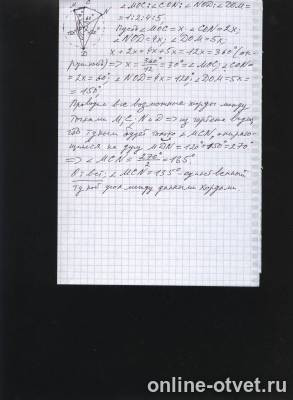 ∠MOC:∠CON:∠NOD:∠DOM=
=1:2:4:5
Пусть ∠MOC=x; ∠CON=2x;
∠NOD=4x; ∠DOM=5x;
x+2x+4x+5x=12x=360°(ок-
ружность) => x=360°/12=30°=∠MOC; ∠CON=
=2x=60°; ∠NOD=4x=120°; ∠DOM=5x=
=150°
все возможные хорды между
точками M, C, N и D => из чертежа видно,
тупым будет ∠MCN, опираю-
щийся на дугу MDN=120°+150°=270°
=> ∠MCN=270°/2=
Ответ: ∠MCN=135° единственный
тупой угол между данными хордами.
online-otvet.ru